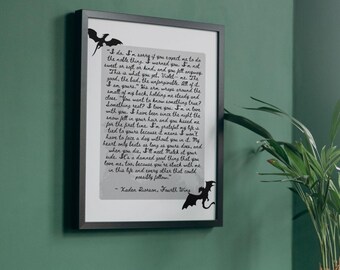 "I do. I'm sorry if you expect me to do
the noble thing. I warned you. I'm not
sweet or soft or kind, and you fell anyway.
This is what you get, Violet—me. The
good, the bad, the unforgivable. All of it.
I am yours." His arm wraps around the
small of my back, holding me steady and
close. "You want to know something true?
Something real? I love you. I'm in love
with you. I have been since the night the
snow fell in your hair and you kissed me
for the first time. I'm grateful my life is
tied to yours because it means I won't
have to face a day without you in it. My
heart only beats as long as yours does, and
when you die, I'll meet Malek at your
side. It's a damned good thing that you
love me, too, because you're stuck with me
in this life and every other that could
possibly follow."
- Xaden Riorson, Fourth Wing